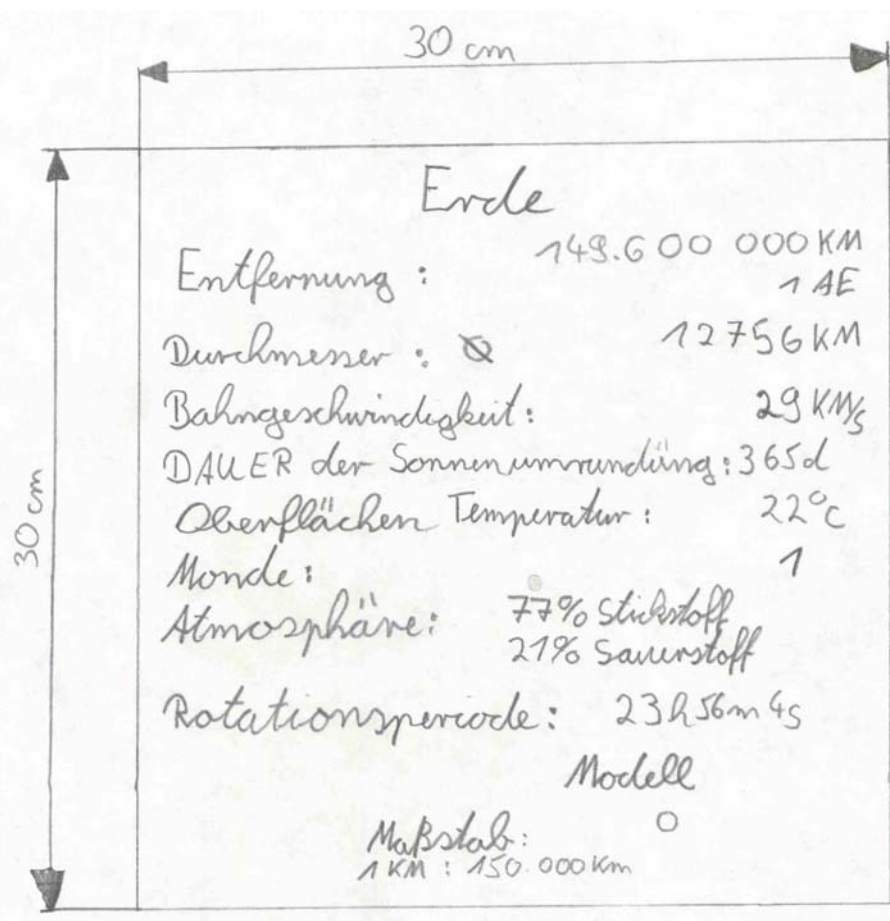 30 cm
30 cm
Erde
Entfernung : 149.600 000 KM
1 AE
Durchmesser : Ø 12756 KM
Bahngeschwindigkeit: 29 KM/s
DAUER der Sonnenumrundüng: 365d
Oberflächen Temperatur: 22°C
Monde: 1
Atmosphäre: 77% Stickstoff
21% Sauerstoff
Rotationsperiode: 23h 56m 4s
Modell
Maßstab:
1 KM : 150.000 Km